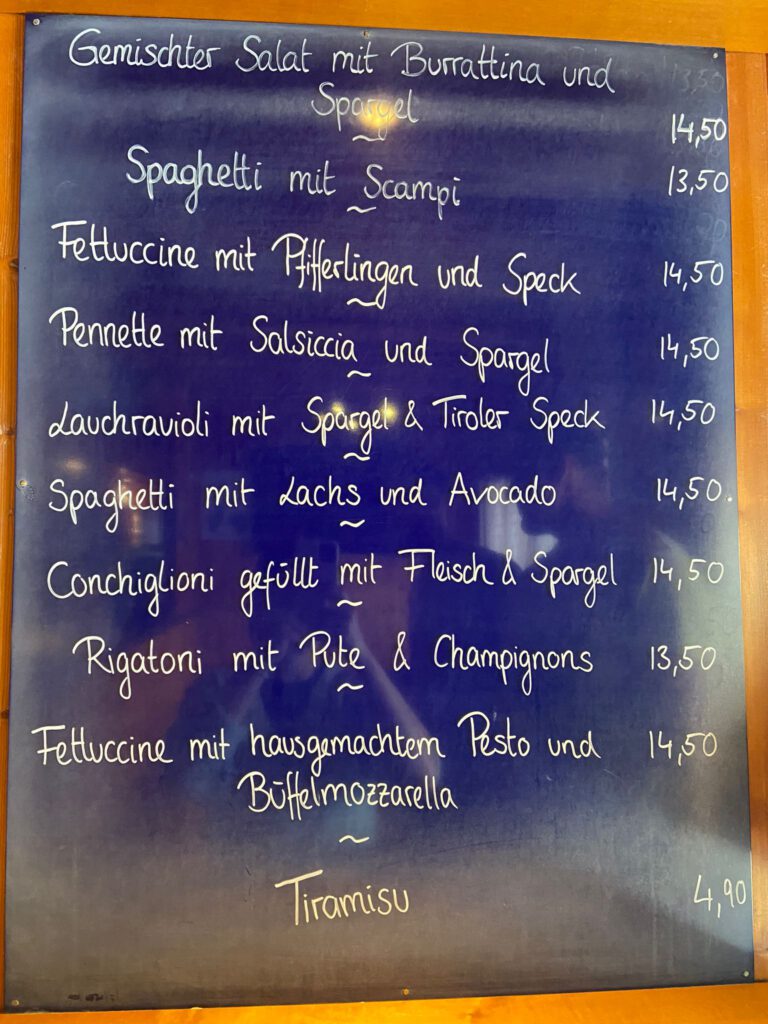 Gemischter Salat mit Burrattina und
Spargel 14,50
Spaghetti mit Scampi 13,50
Fettuccine mit Pfifferlingen und Speck 14,50
Pennette mit Salsiccia und Spargel 14,50
Lauchravioli mit Spargel & Tiroler Speck 14,50
Spaghetti mit Lachs und Avocado 14,50.
Conchiglioni gefüllt mit Fleisch & Spargel 14,50
Rigatoni mit Pute & Champignons 13,50
Fettuccine mit hausgemachtem Pesto und 14,50
Büffelmozzarella
Tiramisu 4,90